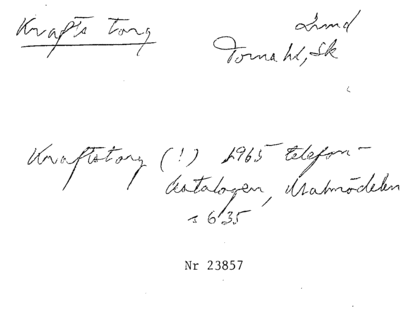 Krafts torg
Lund
Torna hd, Sk
Kraftstorg (!) 1965 telefon-
katalogen, Malmödelen
s 635
Nr 23857